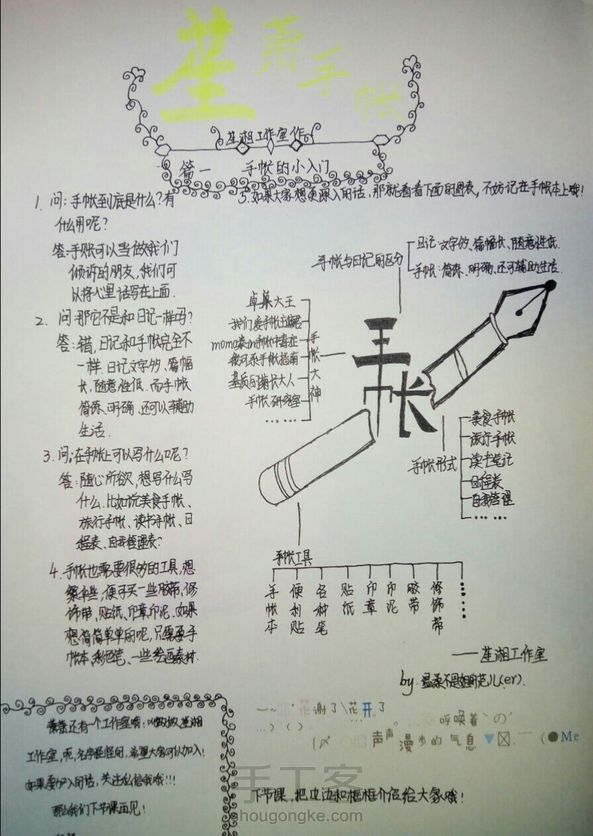 茧 萧 手 帐
茧湘工作室作
篇一 手帐的小入门
1. 问:手帐到底是什么?有
什么用呢?
答:手账可以当做我们
倾诉的朋友,我们可
以将心里话写在上面.
2. 问:那它不是和日记一样吗?
答:错,日记和手帐完全不
一样.日记文字多、篇幅
长,随意性低.而手帐
简练、明确、还可以辅助
生活.
3. 问:在手帐上可以写什么呢?
答:随心所欲,想写什么写
什么.比如说美食手帐、
旅行手帐、读书手帐、日
程表、自我管理表?
4. 手帐也需要很多的工具,想
便可买一些胶带,修
饰带,贴纸,印章印泥.如果
想简简单单的呢,只需要手
帐本、彩色笔、一些绘画素材.
5.如果大家想要深入的话,那就看看下面的图表,不妨记在手帐本上哦!
手帐与日记的区分
日记:文字多、篇幅长、随意性低.
手帐:简练、明确、还可辅助生活.
手帐大神
卓集大王
我们爱手帐
momo
手帐指南
手帐研究室
……
手帐
手帐形式
美食手帐
旅行手帐
读书笔记
日程表
自我管理
……
手帐工具
手帐本
便利贴
各种笔
贴纸
印章
印泥
胶带
修饰带
……
——茧湘工作室
by.
还有一个工作室哦:叫做 茧湘
工作室,呃,名字怪怪的,希望大家可以加入!
如果要加入的话,关注私信我哦!!!
那么我们下节课再见!
花谢了\花开了
呼唤着
声声漫步的气息
Me
下节课,把边边和框框介绍给大家哦!
手工客
shougongke.com